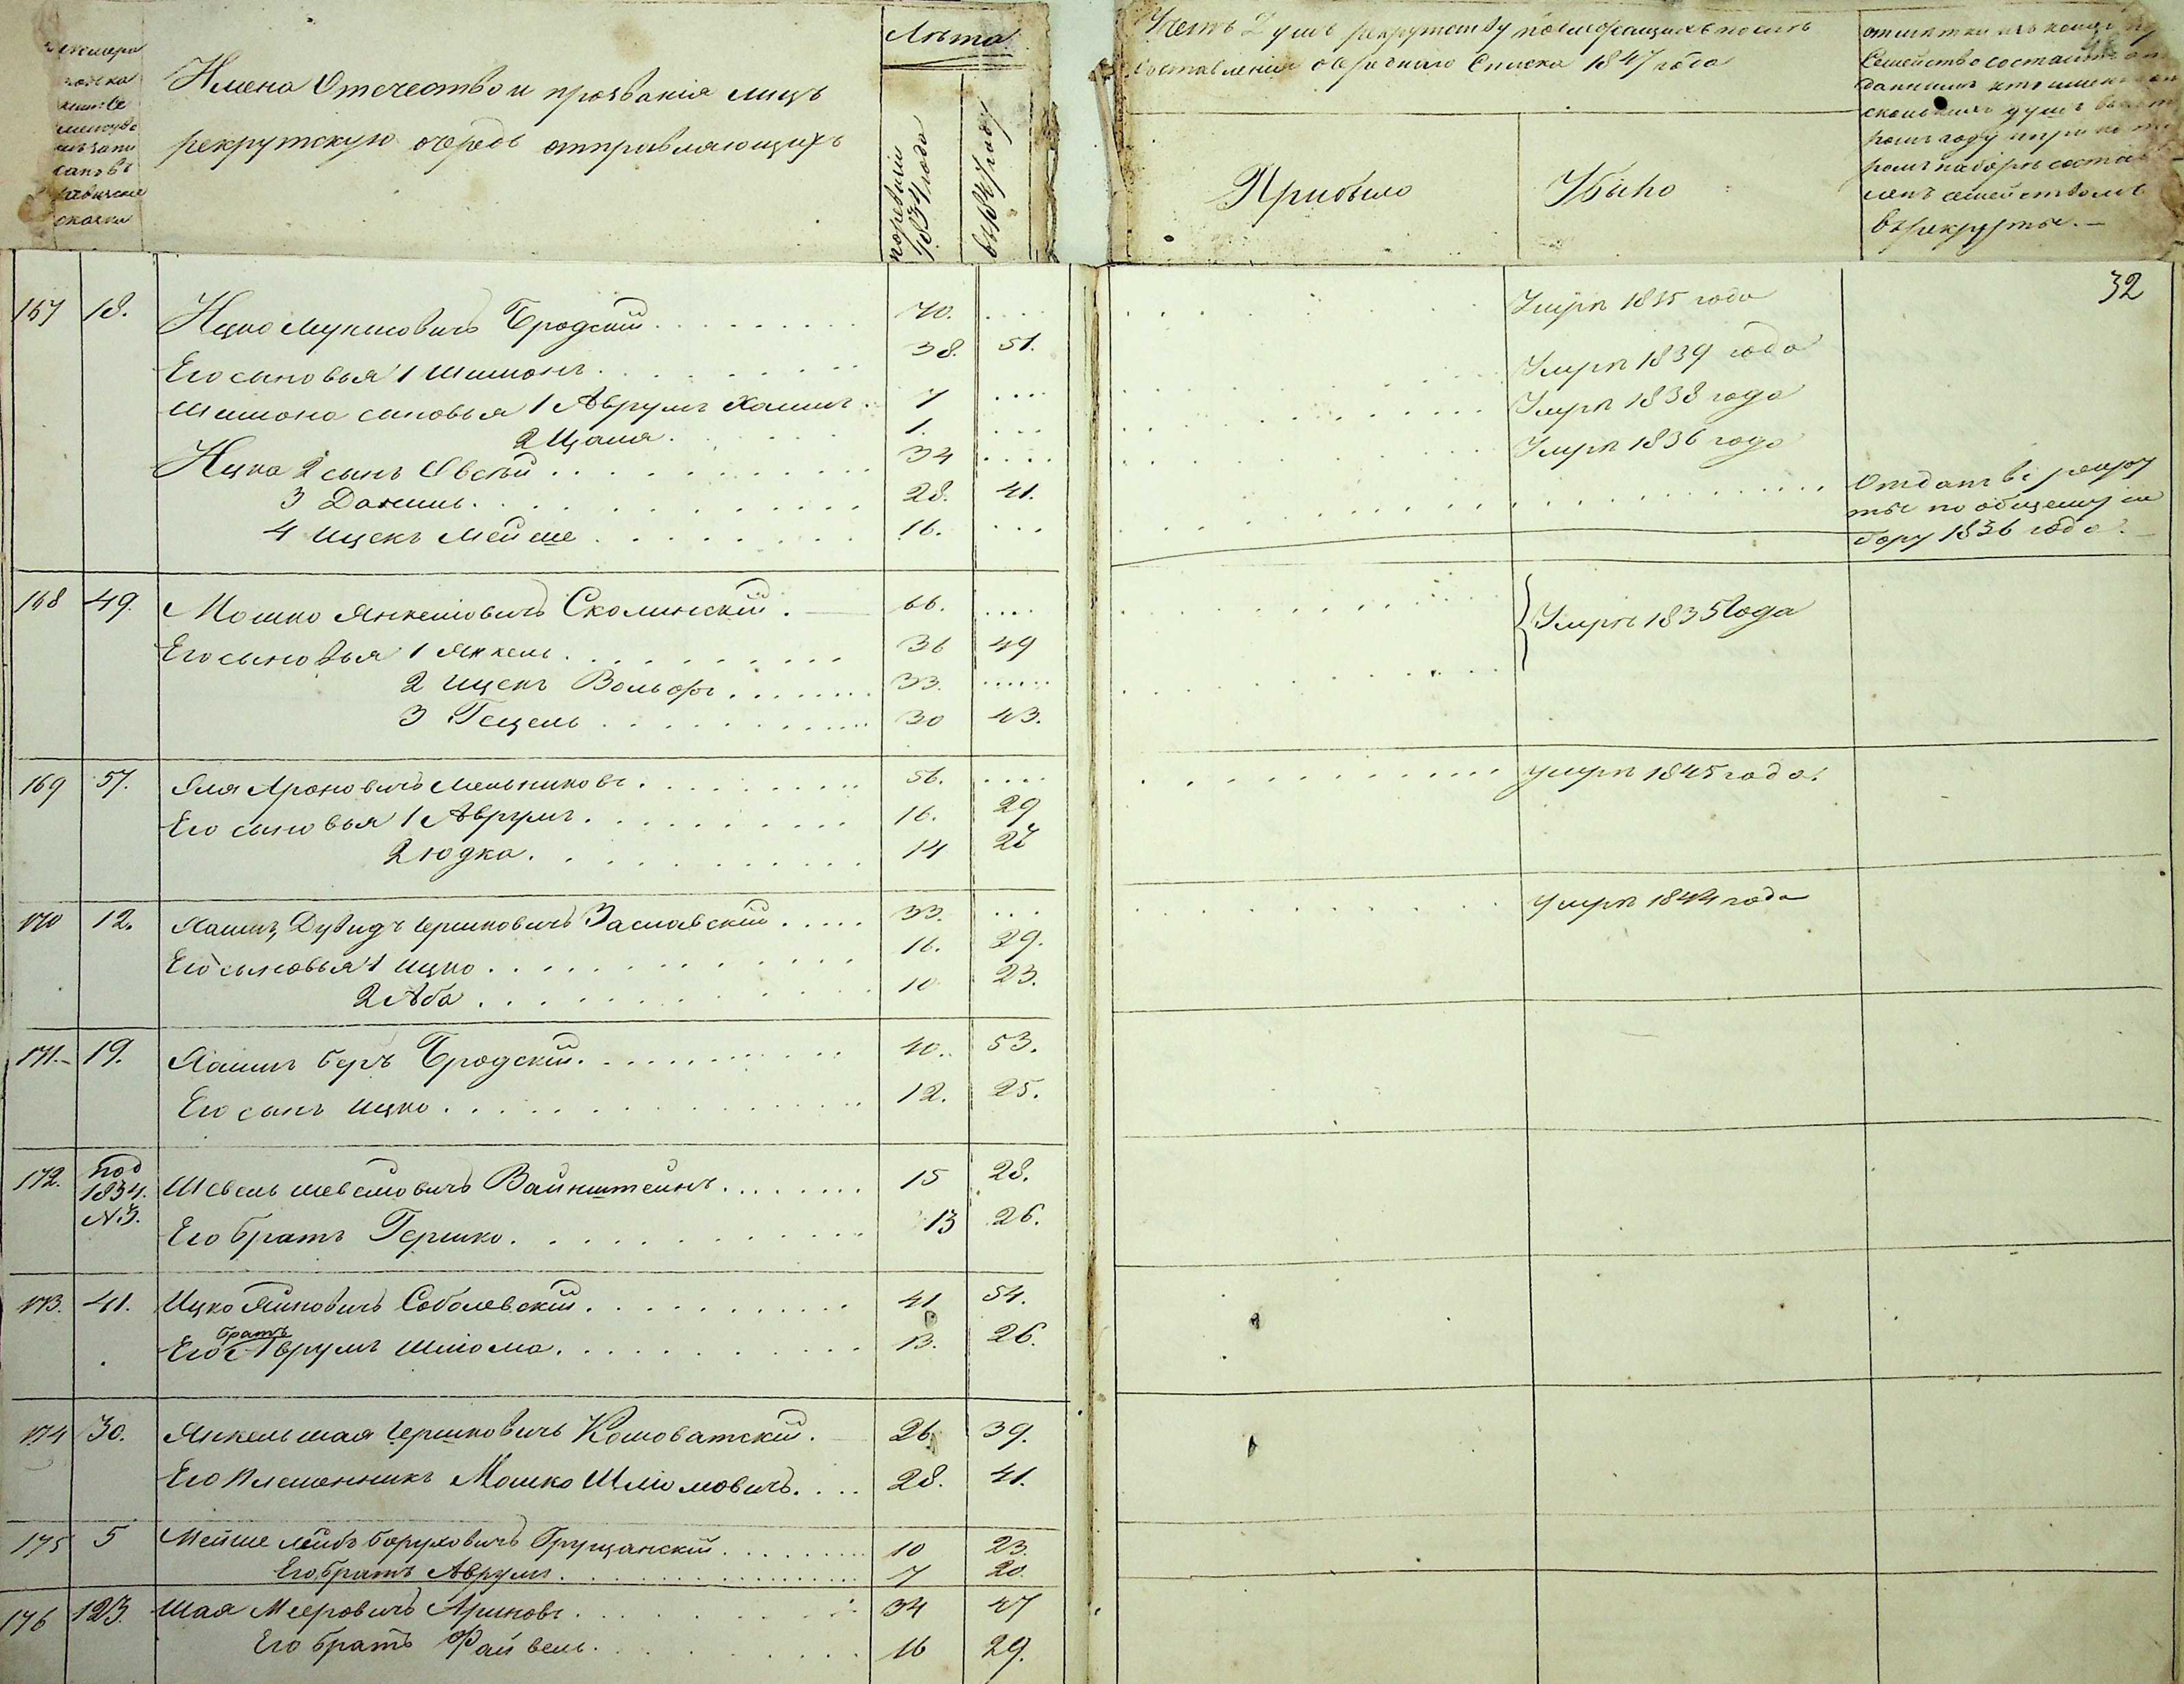 Имена Отечество и прозванія лицъ
рекрутскую очередь отправляющихъ
Лѣта
по ревизіи 1834 года
въ 1847 году
Счетъ Душъ рекрутству подлежащихъ послѣ
составленія очереднаго Списка 1847 года
Прибыло
Убыло
въ рекруты.
32
167 18. Ицко Мункисовичъ Бродскій 70. Умре 1835 года
Его сыновья 1 Шимонъ 38. 51.
Шимона сыновья 1 Аврумъ Хаимъ 7 Умре 1839 года
2 Цаля 1. Умре 1838 года
Ицка 2 сынъ Овсѣй 34 Умре 1836 года
3 Даниль 28. 41.
4 Ицекъ Мейше 16. Отданъ въ рекру
ты по общему на
бору 1836 года.
168 49. Мошко Янкелювичъ Сколинскій 66. Умре 1835 года
Его сыновья 1 Янкель 36 49
2 Ицекъ Вольфъ 33.
3 Гецель 30 43.
169 57. Эля Ароновичъ Мельниковъ 56. умре 1845 года.
Его сыновья 1 Аврумъ 16. 29
2 Юдка 14 27
170 12. Хаимъ Дувидъ Гершковичъ Заславскій 33. умре 1844 года
Его сыновья 1 Ицко 16. 29.
2 Аба 10 23.
171. 19. Хаимъ Беръ Бродскій 40. 53.
Его сынъ Ицко 12. 25.
172. под 1834. №3. Шевель Шевелювичъ Вайнштейнъ 15 28.
Его братъ Гершко 13 26.
173. 41. Ицко Яйновичъ Соболевскій 41 54.
Его братъ Аврумъ Шліома 13. 26.
174 30. Янкель Шая Гершковичъ Коловатскій 26. 39.
Его Племенникъ Мошко Шліомовичъ 28. 41.
175 5 Мейше Лейбъ Боруховичъ Грущанскій 10 23.
Его братъ Аврумъ 7 20.
176 123. Шая Мееровичъ Ариновъ 34 47
Его братъ Файвель 16 29.